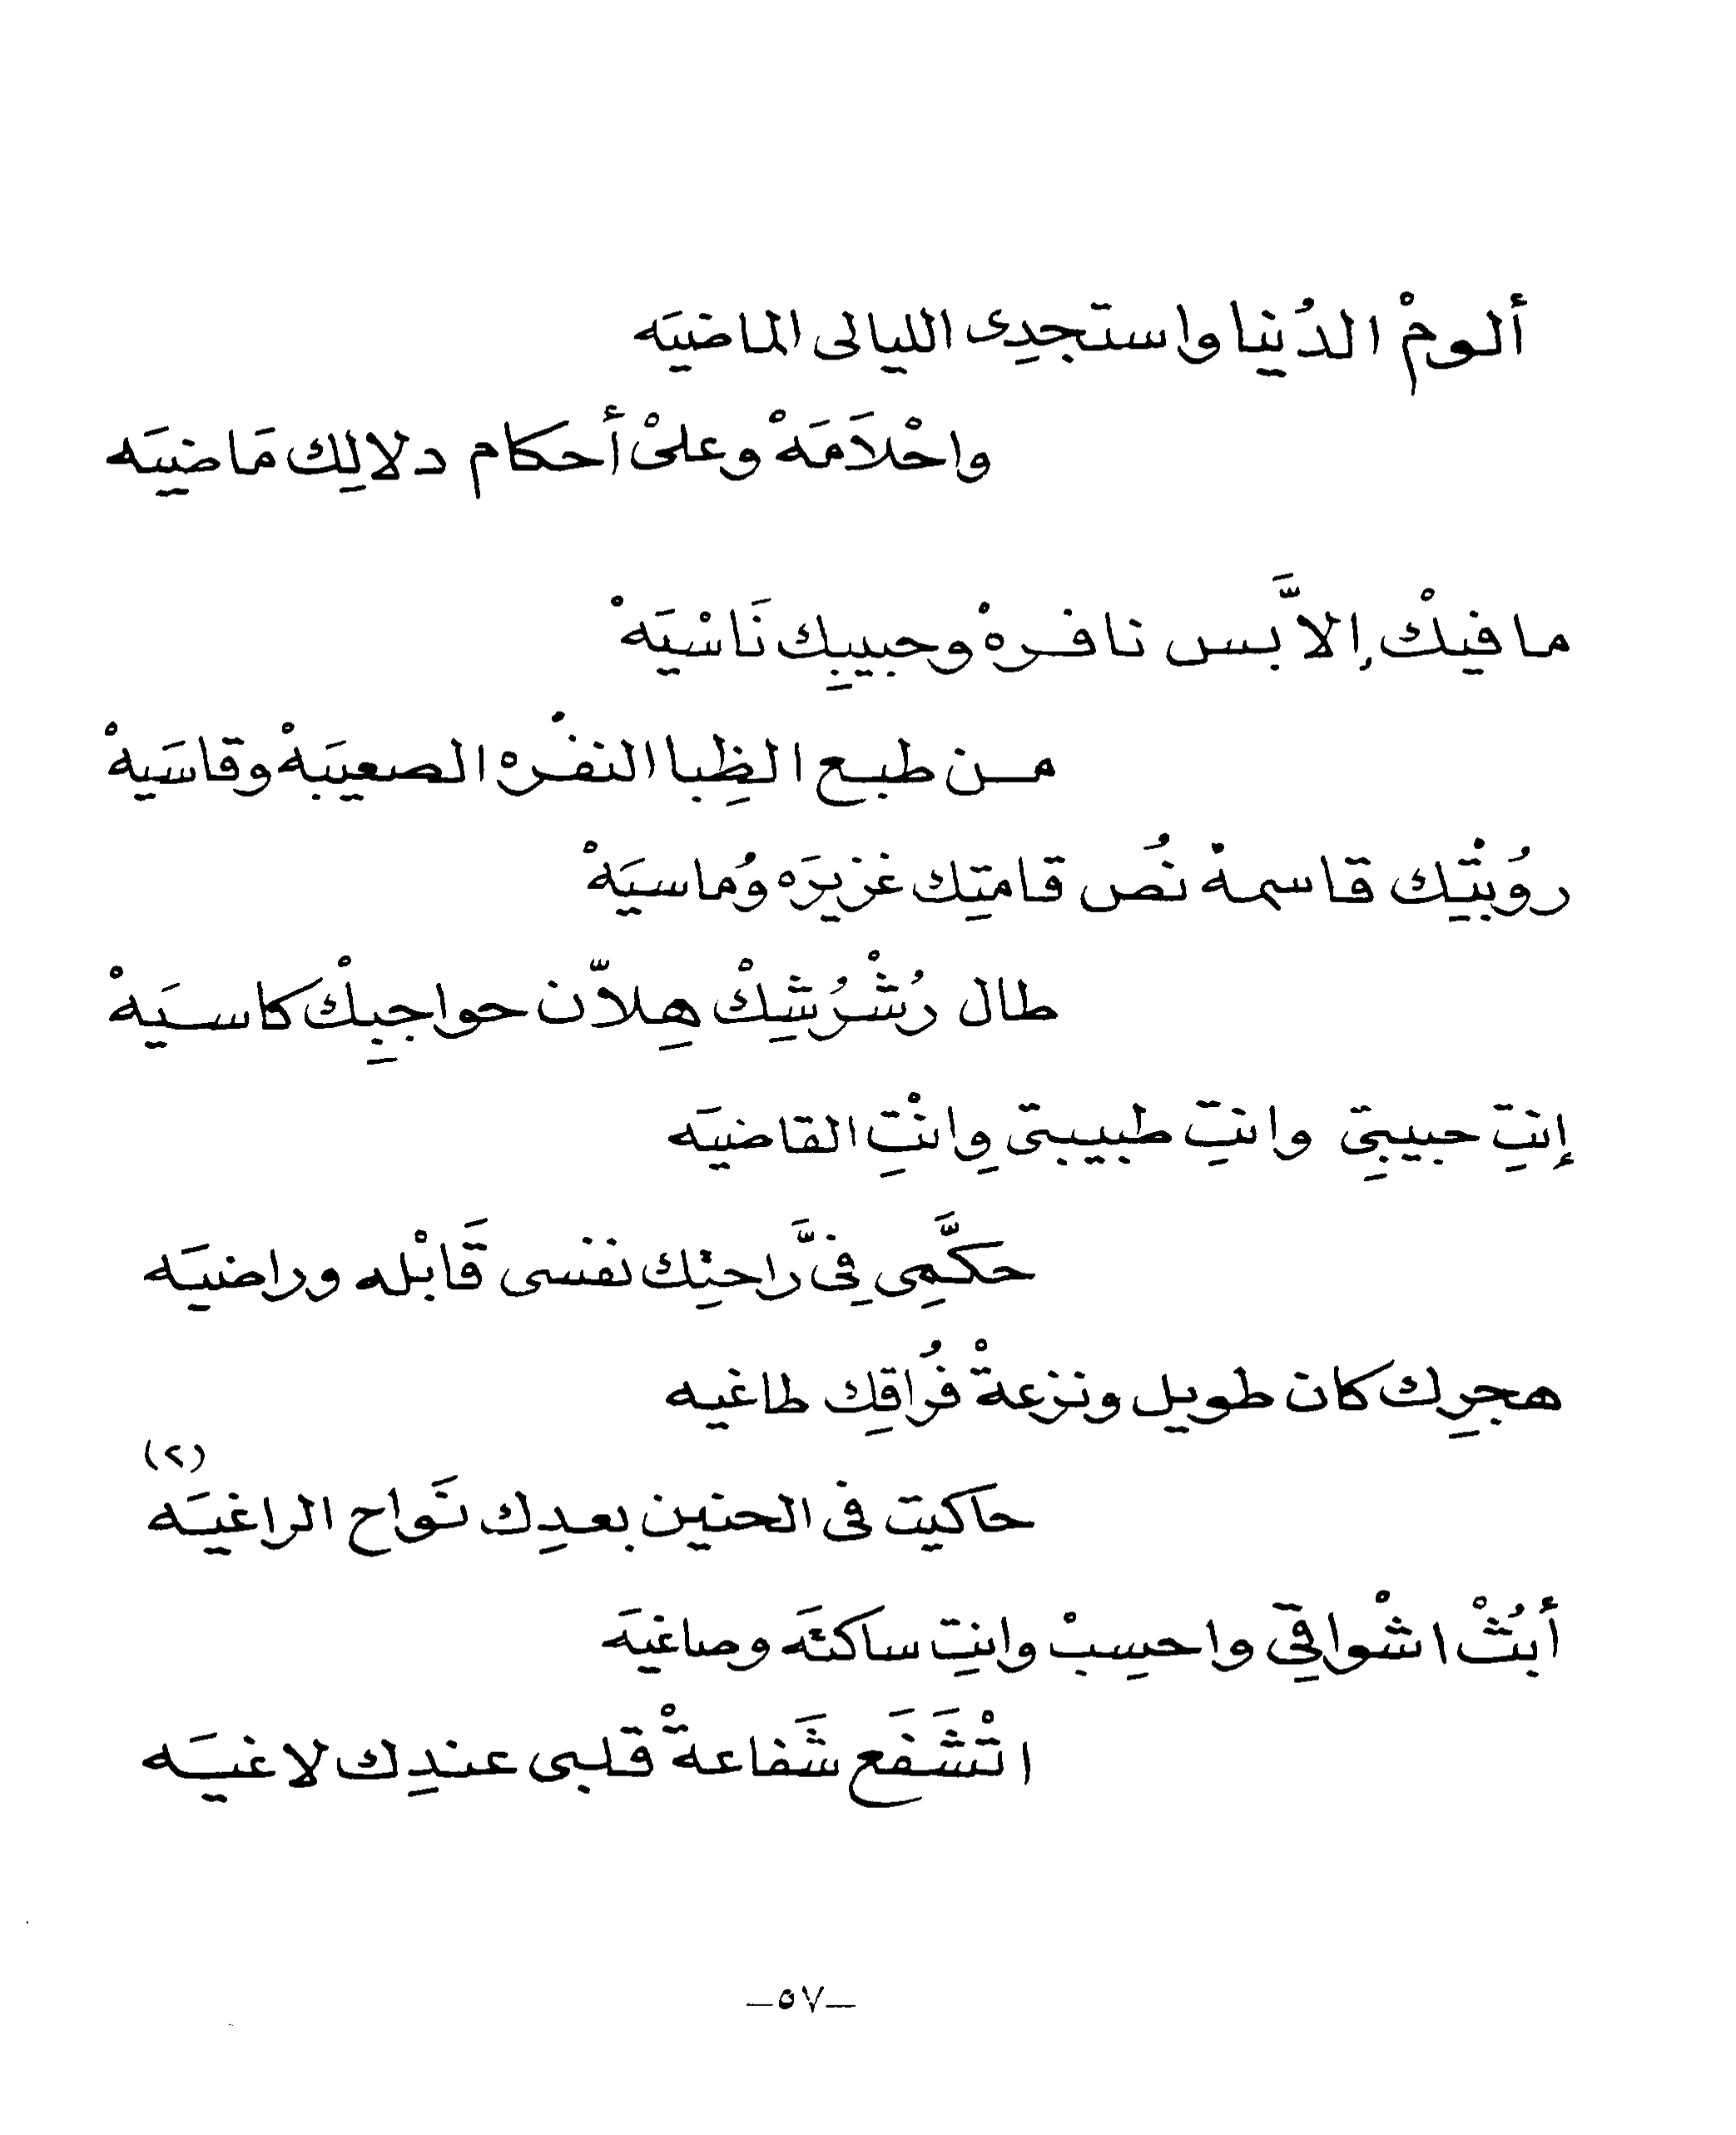 ألومْ الدُنيا واستجدِى الليالى الماضيَه
واحْلاَمَهْ وعلىْ أحكام دلالِك مَاضيَه
ما فيكْ إلاَّ بَس نافرهْ وحبيبِك نَاسْيَهْ
من طبع الظِبا النفْره الصعيبَهْ وقاسَيهْ
روُبْتِك قاسمةْ نُص قامتِك غزيرَه وُماسيَهْ
طال رُشْرُشِكْ هِلاّن حواجبِكْ كاسيَهْ
إنتِ حبيبتِى وانتِ طبيبتى وِانْتِ القاضيَه
حكَّمِى فِى رَّاحتِك نفسى قَابْله وراضيَه
هجرِك كان طويل ونزعةْ فُراقِك طاغيه
حاكيت فى الحنين بعدِك نَواح الراغيَه (٢)
أبُثْ اشْواقِى واحسِبْ وانتِ ساكتَه وصاغيَه
اتْشَفَع شَفاعةْ قلبى عندِك لاغيَه
—٥٧—